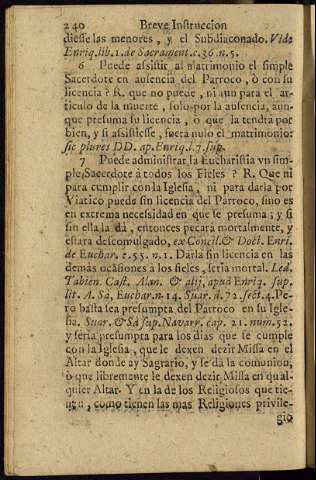 240 Breve Instruccion
diesse las menores, y el Subdiaconado. Vide
Enriq. lib. 1. de Sacrament. c. 36. n. 5.
6 Puede assistir al matrimonio el simple
Sacerdote en ausencia del Parroco, ò con su
licencia? R. que no puede, ni aun para el ar-
ticulo de la muerte, solo por la ausencia, aun-
que presuma su licencia, ò que la tendrà por
bien, y si assistiesse, fuera nulo el matrimonio:
sic plures DD. ap. Enriq. l. 7. sup.
7 Puede administrar la Eucharistia vn sim-
ple Sacerdote à todos los Fieles? R. Que ni
para cumplir con la Iglesia, ni para darla por
Viatico puede sin licencia del Parroco, sino es
en extrema necessidad en que se presuma; y si
sin ella la dà, entonces pecarà mortalmente, y
estarà descomulgado, ex Concil. & Doct. Enri.
de Euchar. c. 55. n. 1. Darla sin licencia en las
demàs ocasiones à los fieles, seria mortal. Led.
Tabien. Cast. Alan. & alij, apud Enriq. sup.
lit. A. Sà, Euchar. n. 14. Suar. d. 72. sect. 4. Pe-
ro basta sea presumpta del Parroco en su Igle-
sia. Suar. & Sà sup. Navarr. cap. 21. num. 52.
y seria presumpta para los dias que se cumple
con la Iglesia, que le dexen dezir Missa en el
Altar donde ay Sagrario, y se dà la comunion,
ò que libremente le dexen dezir Missa en qual-
quier Altar. Y en la de los Religiosos que tie-
nen, como tienen las mas Religiones privile-
gio